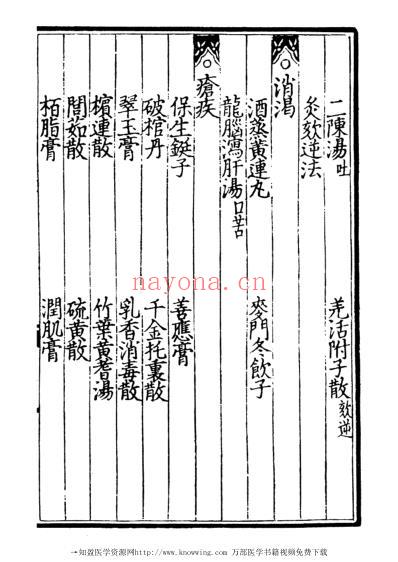 二陳湯吐 羌活附子散欬逆
灸欬逆法
消渴
酒蒸黃連丸 麥門冬飲子
龍腦瀉肝湯口苦
瘡疾
保生鋌子 善應膏
破棺丹 千金托裏散
翠玉膏 乳香消毒散
檳連散 竹葉黃耆湯
䕡茹散 硫黃散
栢脂膏 潤肌膏
nayona.cn
→知盈医学资源网http://www.knowwing.com 万部医学书籍视频免费下载